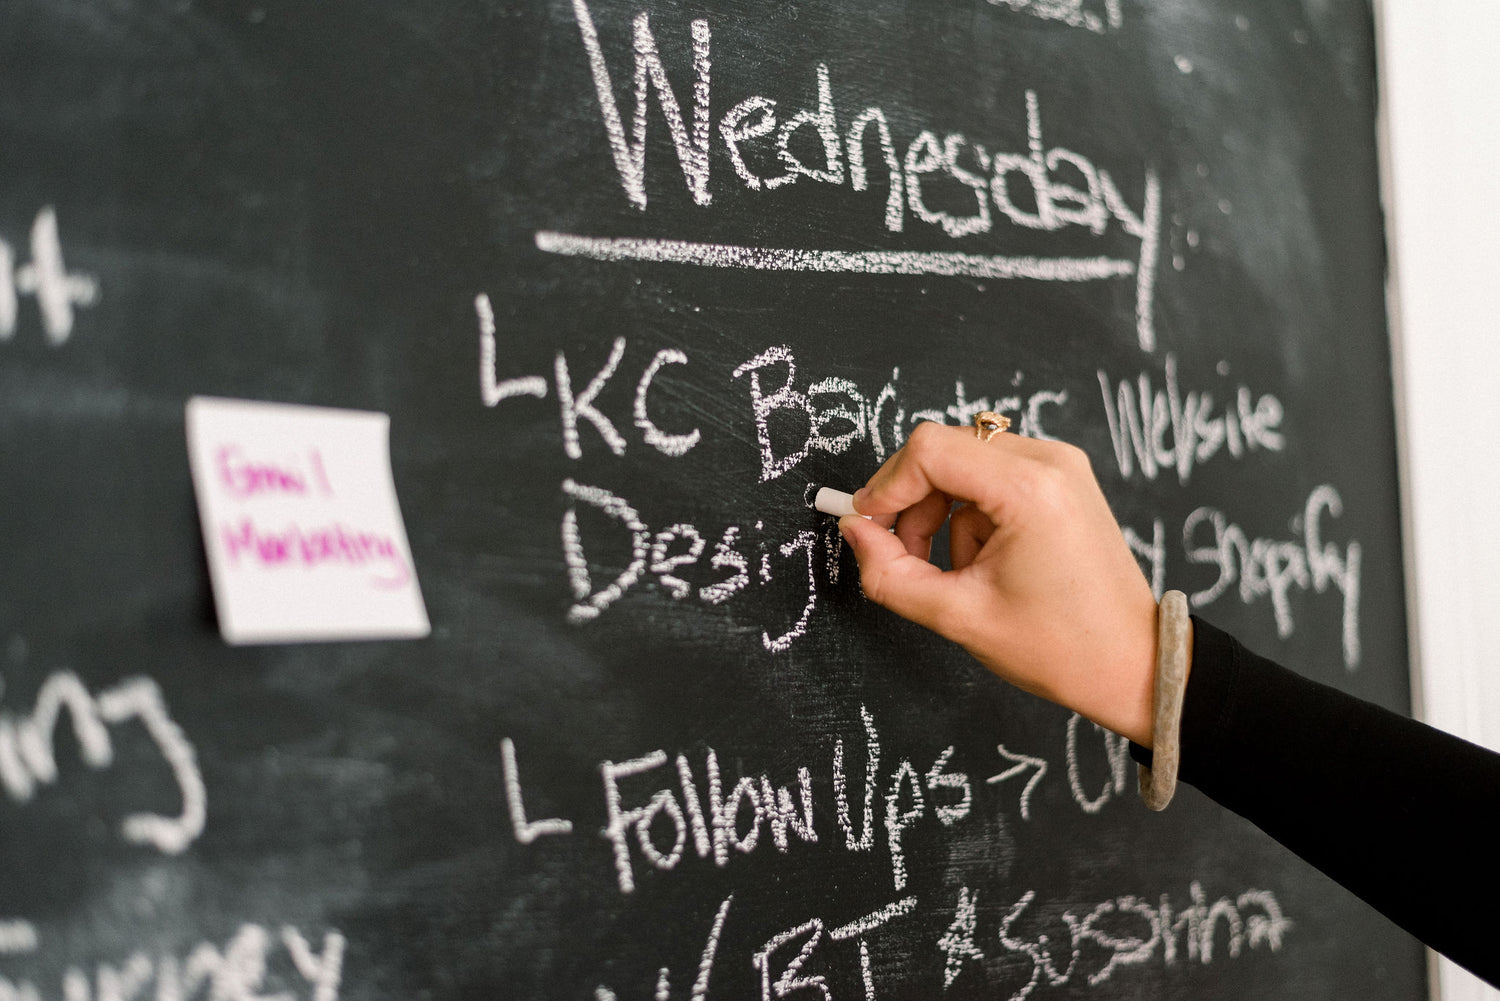 Wednesday
KC Bariatric Website
Design Shopify
Follow Ups →
BT & Susanna
Email
Marketing